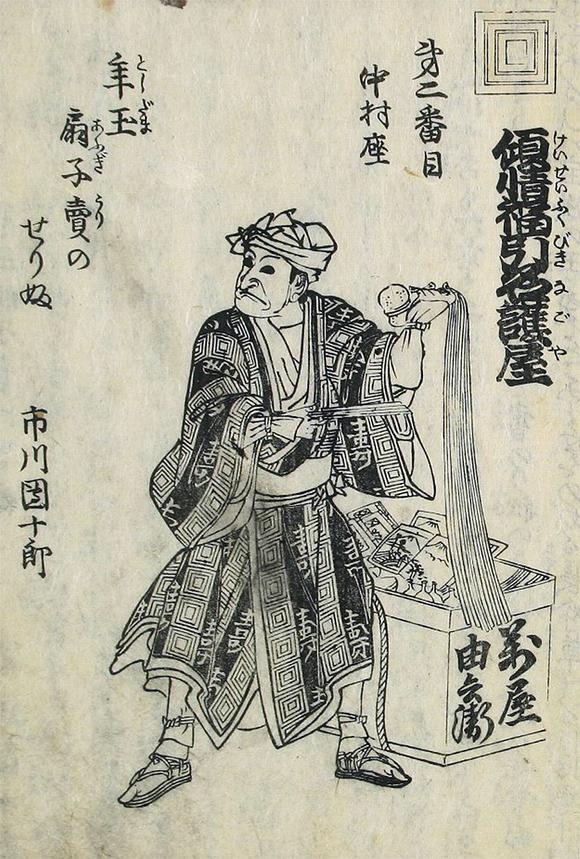 傾情福引名護屋
けいせいふくびきなごや
第二番目
中村座
年玉
としだま
扇子賣の
あふぎうり
せりふ
市川團十郎
萬屋
由兵衛